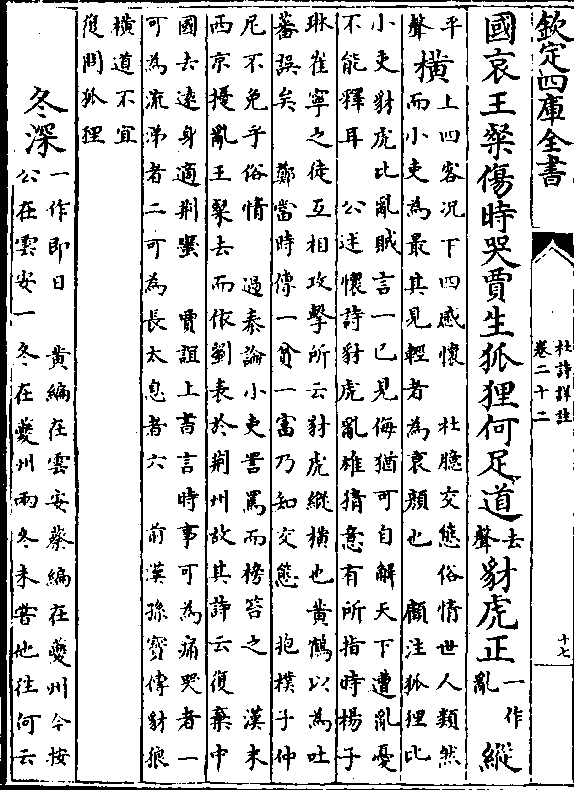 欽定四庫全書
杜詩詳註
卷二十二
十七
國哀王粲傷時哭賈生狐狸何足道去聲豺虎正一作亂縱
平聲橫上四客况下四感懷 杜臆交態俗情世人類然
而小吏為最其見輕者為衰顏也 顧注狐狸比
小吏豺虎比亂賊言一已見侮猶可自解天下遭亂憂
不能釋耳 公述懷詩豺虎亂雄猜意有所指時楊子
琳崔寧之徒互相攻擊所云豺虎縱橫也黄鶴以為吐
蕃誤矣 鄭當時傳一貧一富乃知交態 抱樸子仲
尼不免乎俗情 過秦論小吏詈罵而榜笞之 漢末
西京擾亂王粲去而依劉表於荆州故其詩云復棄中
國去遠身適荆蠻 賈誼上書言時事可為痛哭者一
可為流涕者二可為長太息者六 前漢孫寶傳豺狼
橫道不宜
復問狐狸
冬深一作即日 黄編在雲安蔡編在夔州今按
公在雲安一冬在夔州兩冬未嘗他往何云